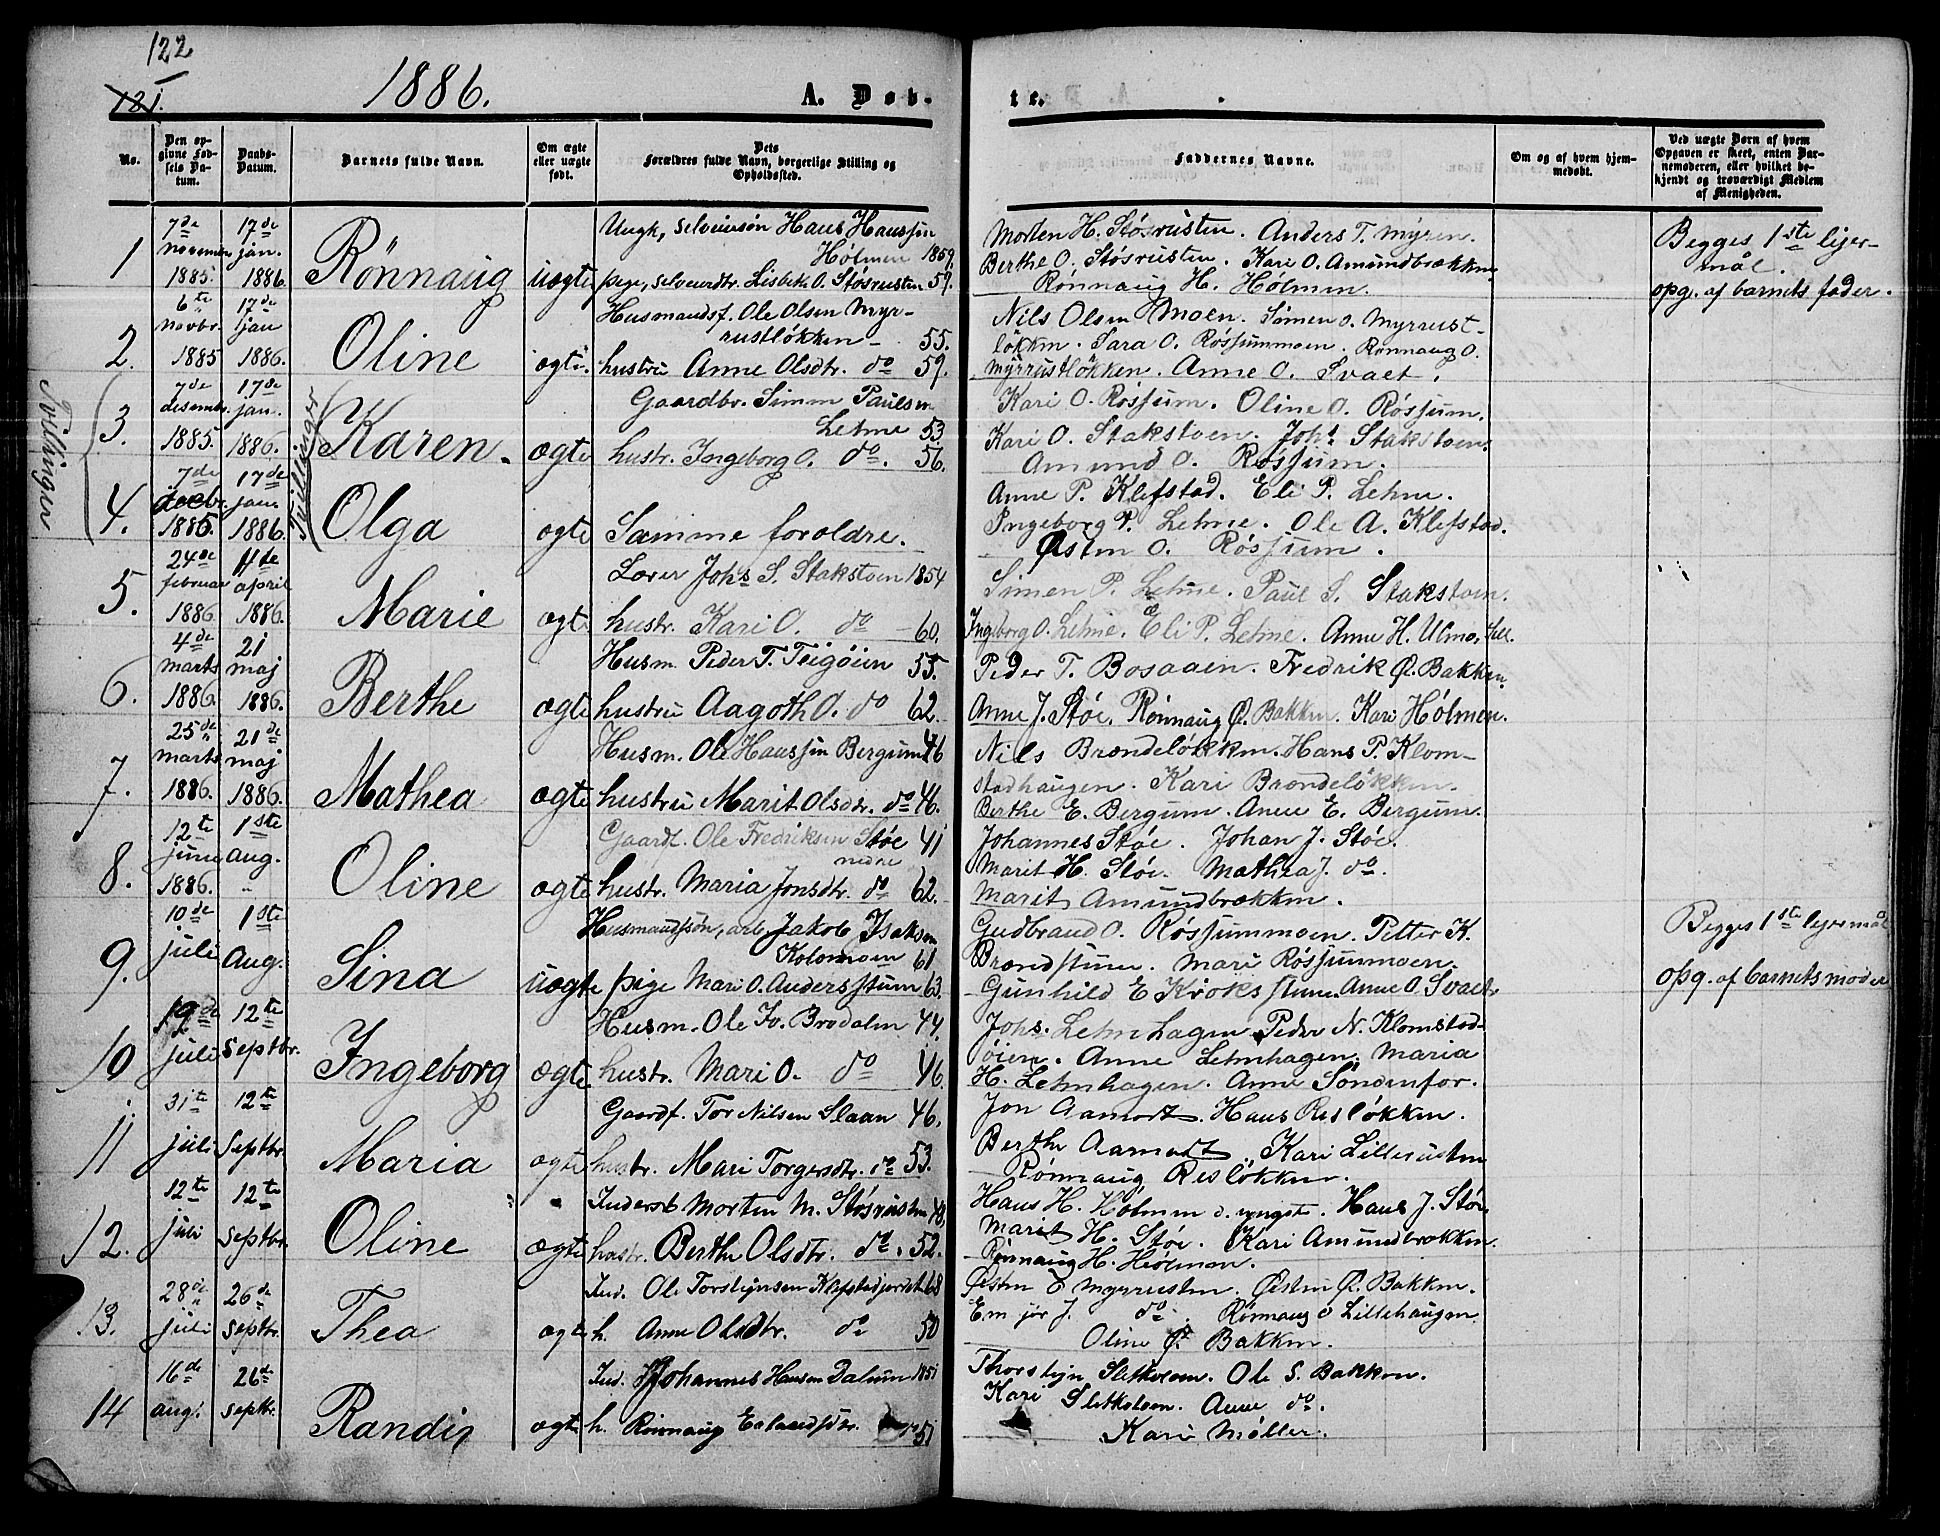 122
121.
1886.
A. Døb-
te.
No.
Den opgivne Fødsels Datum.
Daabs-Datum.
Barnets fulde Navn.
Om ægte eller uægte født.
Dets Forældres fulde Navn, borgerlige Stilling og Opholdssted.
Faddernes Navne.
Om og af hvem hjemmedøbt.
Ved uægte Børn af hvem Opgaven er skeet, enten Barnemoderen, eller hvilket bekjendt og troværdigt Medlem af Menigheden.
1
7de november 1885
17de jan. 1886.
Rønnaug
uægte
Ungk, selveiersøn Hans Hanssen
Hølmen 1859,
pige, selveierdtr. Lisbeth O. Støsrusten 59.
Morten H. Støsrusten. Anders T. Myren.
Berthe O. Støsrusten. Kari O. Amundbrækken
Rønnaug H. Hølmen.
Begges 1ste lejer-
mål.
opg. af barnets fader.
2.
6te novbr. 1885
17de jan 1886.
Oline
ægte.
Husmandsf. Ole Olsen Myr-
rustløkken - 55.
hustru Anne Olsdtr. do 59.
Nils Olsen Moen. Simen O. Myrrust-
løkken. Sara O. Røssummoen. Rønnaug O.
Myrrustløkken. Anne O. Svaet.
Tvillinger
Tvillinger
3.
7de desembr. 1885.
17de jan. 1886.
Karen.
ægte
Gaardbr. Simen Paulsen
Letme 53.
hustr. Ingeborg O. do. 56.
Kari O. Røssum. Oline O. Røssum.
Kari O. Stakstoen. Johs. Stakstoen.
Amund O. Røssum.
4.
7de decbr. 1885.
17de jan. 1886.
Olga
ægte
Samme foroldre.
Anne P. Klefstad. Eli P. Letme.
Ingeborg P. Letme. Ole A. Klefstad.
Østen O. Røssum.
5.
24de februar 1886
11de april 1886.
Marie
ægte
Lærer Johs S. Stakstoen 1854
hustr. Kari O. do 60.
Simen P. Letme. Paul S. Stakstoen.
Ingeborg O. Letme. Eli P. Letme. Anne H. Ulmo,
6.
4de marts 1886.
21 maj 1886.
Berthe
ægte
Husm. Peder T. Teigøien 55.
hustru Aagoth O. do 62.
Peder T. Bosaaen. Fredrik Ø. Bakken.
Anne J. Støe. Rønnaug Ø. Bakken. Kari Hólmen.
7.
25de marts 1886.
21de maj 1886.
Mathea
ægte
Husm. Ole Hanssen Bergum 46
hustru Marit Olsdtr. do 46.
Nils Brændeløkken. Hans P. Klom-
stadhaugen. Kari Brændeløkken.
Berthe E. Bergum. Anne E. Bergum.
8.
12te juni 1886.
1ste aug. "
Oline
ægte
Gaardf. Ole Fredriksen Støe 41
nedre
hustr. Maria Jonsdtr. do 62.
Johannes Støe. Johan J. Støe.
Marit H. Støe. Mathea J. do.
Marit Amundbrækken.
9.
10de juli
1ste Aug.
Sina
uægte
Husmandssøn, arb. Jakob Isaksen
Kolomoen 61
pige Mari O. Andersstuen 63.
Gudbrand O. Røssummoen. Petter K.
Brændstuen. Mari Røssummoen.
Gunhild E Kroksstuen. Anne O. Svaet.
Begges 1ste lejermål
opg. af barnets moder
10
19de juli
12te septbr.
Ingeborg
ægte
Husm. Ole Brodalen 44.
hustr. Mari O. do 46.
Johs. Letmhagen. Peder N. Klomstad-
øien. Anne Letmhagen. Maria
H. Letmhagen. Anne Søndenfor.
11
31te juli
12te Septbr.
Maria
ægte
Gaardf. Tor Nilsen Slaan 46.
hustr. Mari Torgersdtr. do 53.
Jon Aamodt. Hans Resløkken.
Berthe Aamodt. Kari Lillerusten
Rønnaug Resløkken.
12.
12te juli
12te septbr.
Oline
ægte
Inderst Morten M. Støsrusten 48,
hustr. Berthe Olsdtr. do. 52.
Hans H. Hølmen d. yngste. Hans J. Støe.
Marit H. Støe. Kari Amundbrækken.
Rønnaug H. Hølmen.
13.
28de juli
26de septbr.
Thea
ægte
Ind. Ole Torstejnsen Klefstadjordet 68
h. Anne Olsdtr. do 50
Østen O Myrrusten. Østen Ø. Bakken.
J. do. Rønnaug O Lillehaugen
Oline Ø. Bakken.
14
16de aug.
26de septbr.
Randi
ægte
Ind. Johannes Hansen Dalum 1851
h. Rønnaug Erlandsdtr. do 51
Thorstejn Sletholoen. Ole S. Bakken.
Kari Sletholoen. Anne do.
Kari Møller.